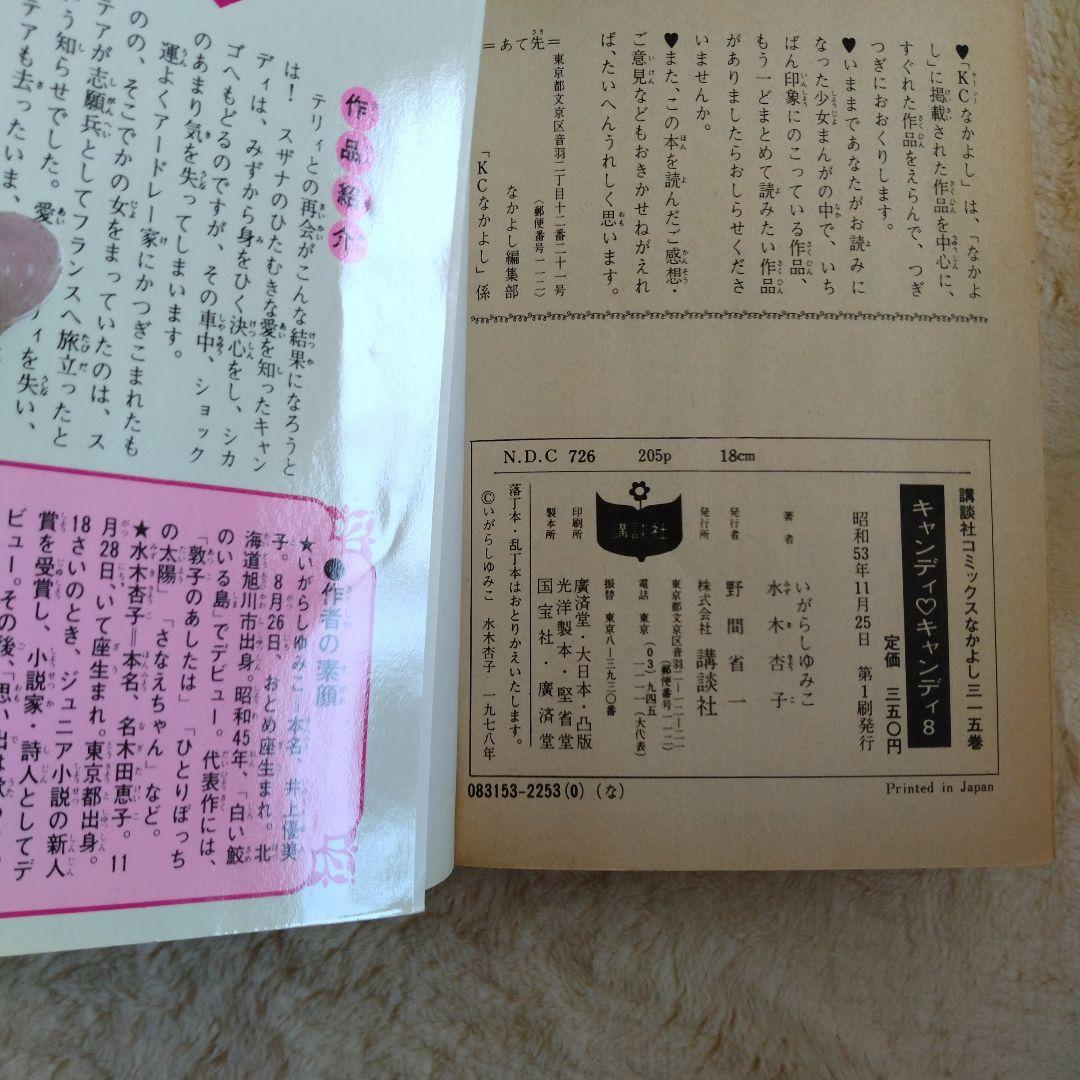 ♥「KCなかよし」は、「なかよ
し」に掲載された作品を中心に、
すぐれた作品をえらんで、つぎ
つぎにおおくりします。
♥いままであなたがお読みに
なった少女まんがの中で、いち
ばん印象にのこっている作品、
もう一どまとめて読みたい作品
がありましたらおしらせくださ
いませんか。
♥また、この本を読んだご感想・
ご意見などもおきかせねがえれ
ば、たいへんうれしく思います。
＝あて先＝
東京都文京区音羽二丁目十二番二十一号
（郵便番号一一二）
なかよし編集部
「KCなかよし」係
N.D.C 726 205p 18cm
講談社コミックスなかよし三一五巻
キャンディ♡キャンディ8
昭和53年11月25日 第1刷発行
定価 三五〇円
著者 いがらしゆみこ
水木杏子
発行者 野間省一
発行所 株式会社 講談社
東京都文京区音羽二―一二―二一
（郵便番号一一二）
電話 東京（03）九四五
一一一一（大代表）
振替 東京八―三九三〇番
講談社
印刷所 廣済堂・大日本・凸版
製本所 光洋製本・堅省堂
国宝社・廣済堂
落丁本・乱丁本はおとりかえいたします。
©いがらしゆみこ 水木杏子 一九七八年
083153-2253(0)（な）
Printed in Japan
作品紹介
テリィとの再会がこんな結果になろうと
は！ スザナのひたむきな愛を知ったキャン
ディは、みずから身をひく決心をし、シカ
ゴへもどるのですが、その車中、ショック
のあまり気を失ってしまいます。
運よくアードレー家にかつぎこまれたも
のの、そこでかの女をまっていたのは、ス
テアが志願兵としてフランスへ旅立ったと
う知らせでした。愛
テアも去ったいま、
ィを失い、
作者の素顔
★いがらしゆみこ＝本名、井上優美
子。8月26日、おとめ座生まれ。北
海道旭川市出身。昭和45年、「白い鮫
のいる島」でデビュー。代表作には、
「敦子のあしたは」「ひとりぼっち
の太陽」「さなえちゃん」など。
★水木杏子＝本名、名木田恵子。11
月28日、いて座生まれ。東京都出身。
18さいのとき、ジュニア小説の新人
賞を受賞し、小説家・詩人としてデ
ビュー。その後、「思い出は歌